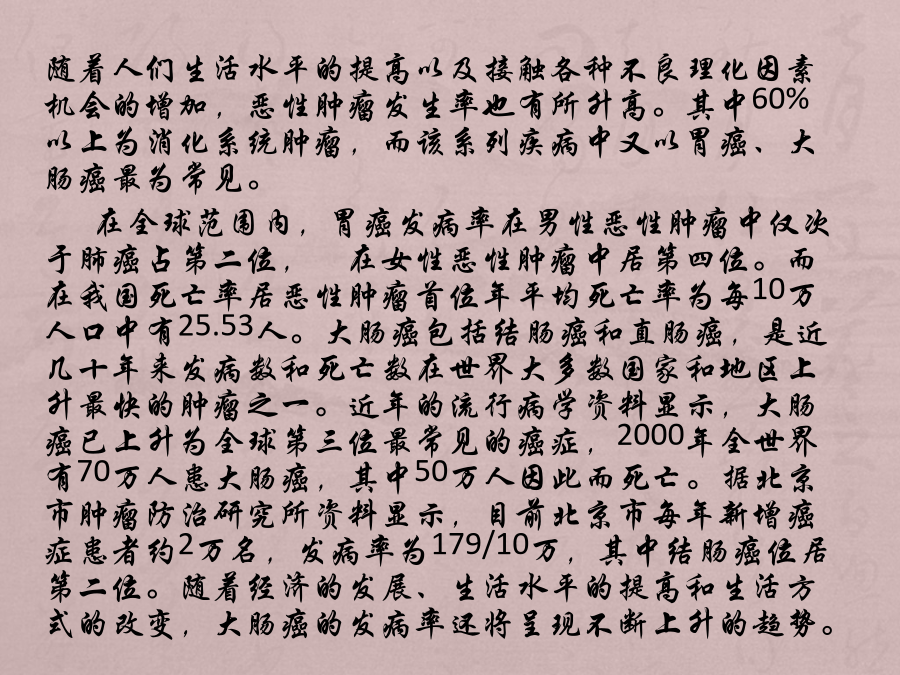 随着人们生活水平的提高以及接触各种不良理化因素
机会的增加，恶性肿瘤发生率也有所升高。其中60%
以上为消化系统肿瘤，而该系列疾病中又以胃癌、大
肠癌最为常见。
在全球范围内，胃癌发病率在男性恶性肿瘤中仅次
于肺癌占第二位， 在女性恶性肿瘤中居第四位。而
在我国死亡率居恶性肿瘤首位年平均死亡率为每10万
人口中有25.53人。大肠癌包括结肠癌和直肠癌，是近
几十年来发病数和死亡数在世界大多数国家和地区上
升最快的肿瘤之一。近年的流行病学资料显示，大肠
癌已上升为全球第三位最常见的癌症，2000年全世界
有70万人患大肠癌，其中50万人因此而死亡。据北京
市肿瘤防治研究所资料显示，目前北京市每年新增癌
症患者约2万名，发病率为179/10万，其中结肠癌位居
第二位。随着经济的发展、生活水平的提高和生活方
式的改变，大肠癌的发病率还将呈现不断上升的趋势。